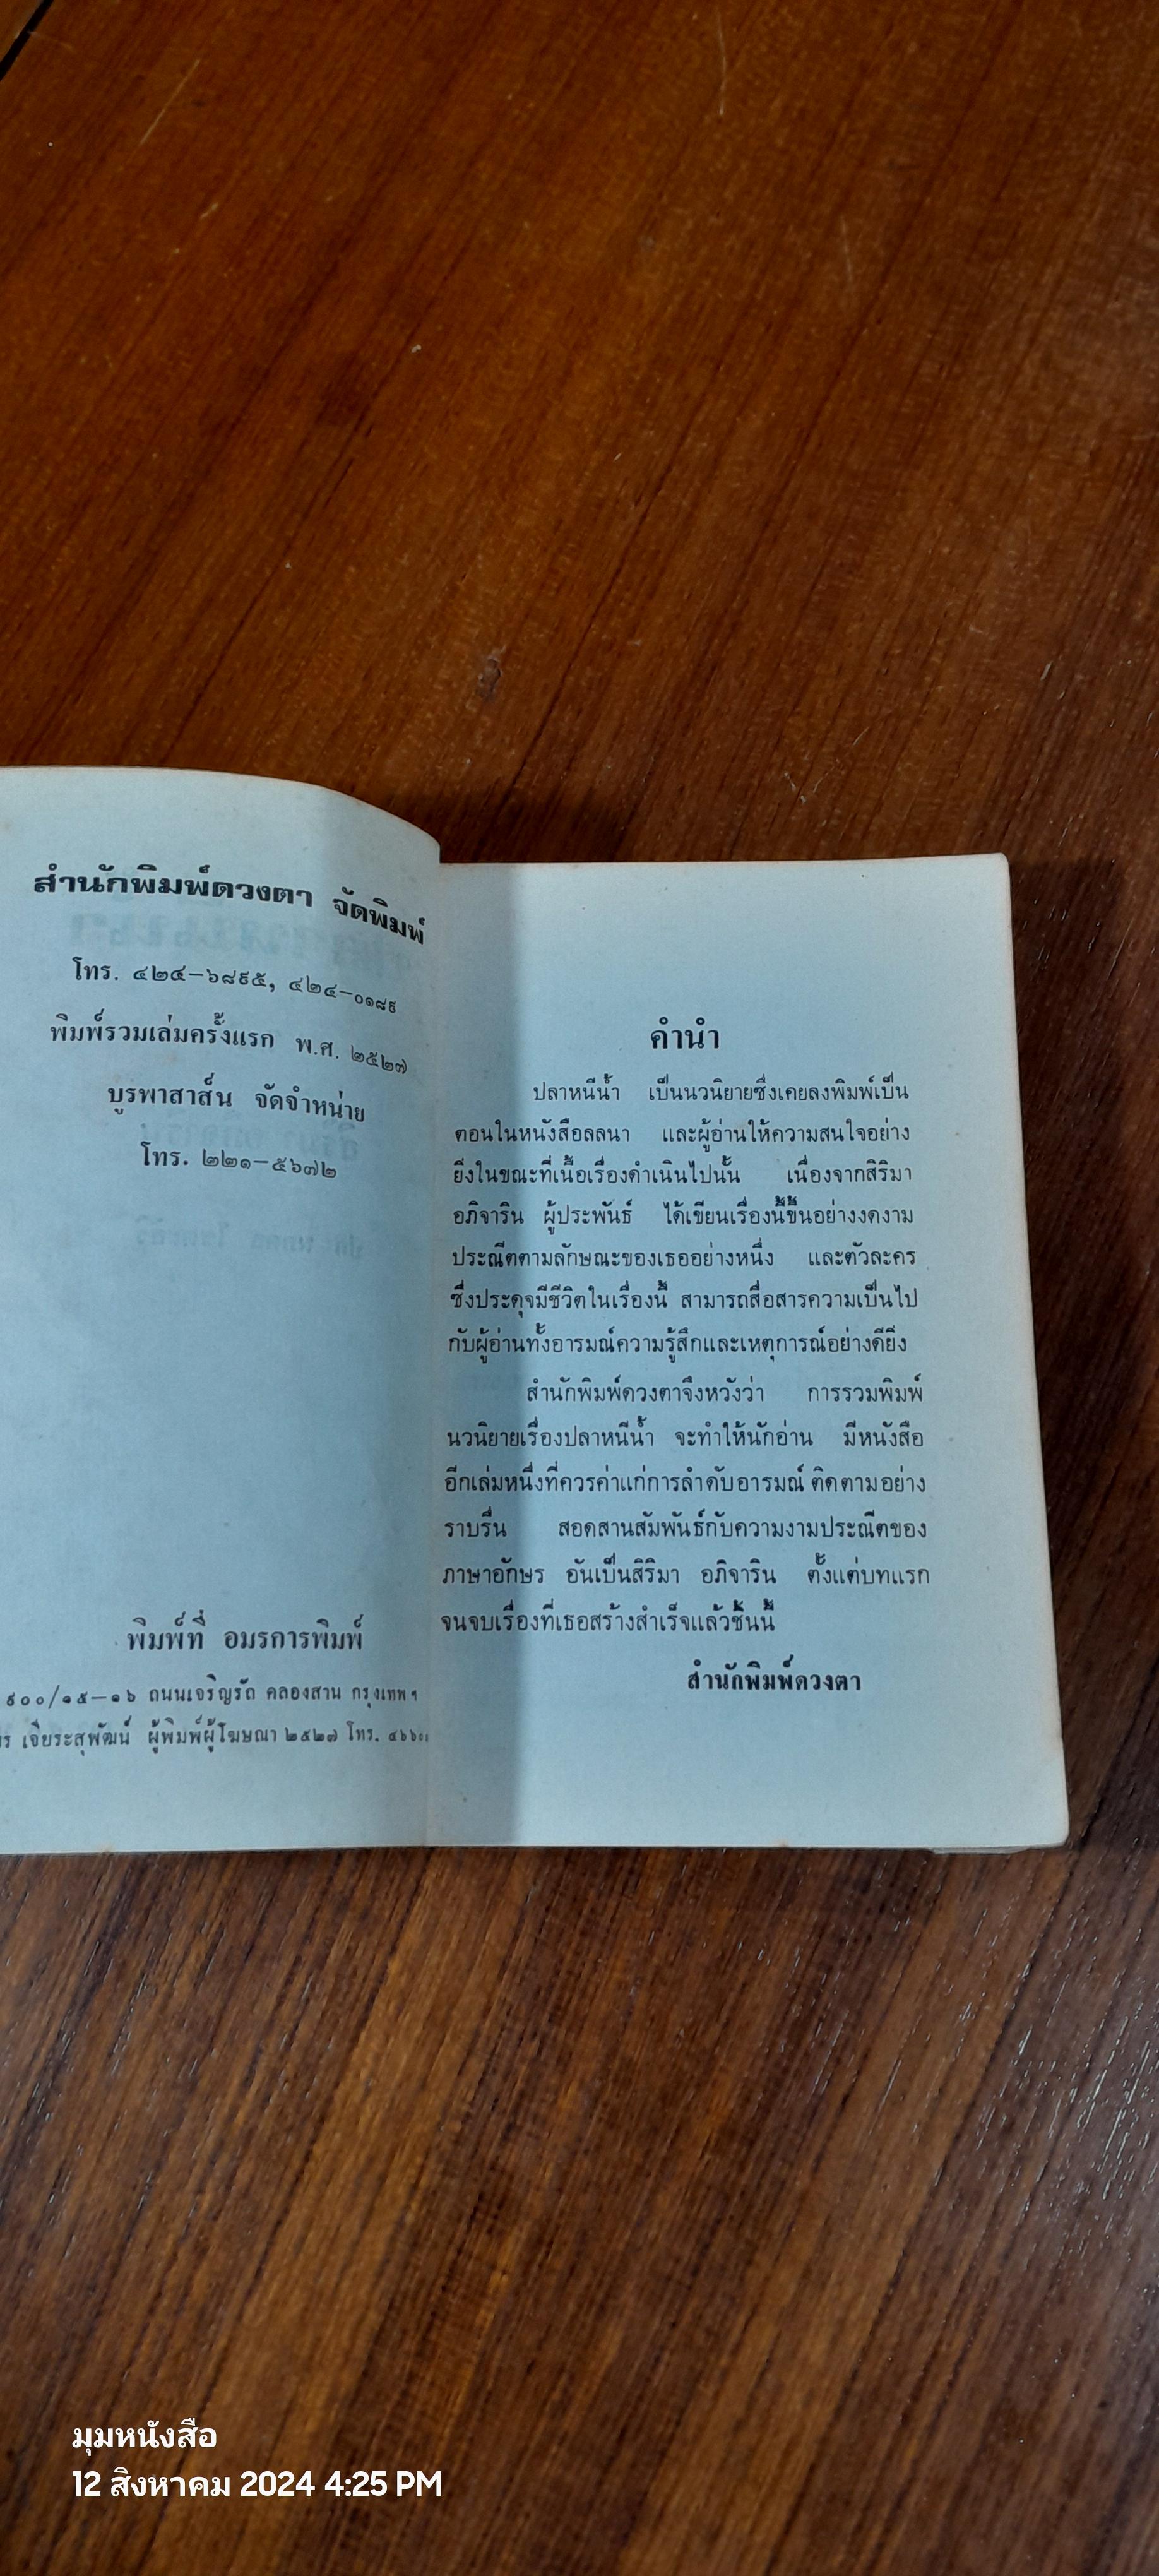 สำนักพิมพ์ดวงตา จัดพิมพ์
โทร. ๔๒๔-๖๘๙๕, ๔๒๔-๐๑๘๙
พิมพ์รวมเล่มครั้งแรก พ.ศ. ๒๕๒๗
บูรพาสาส์น จัดจำหน่าย
โทร. ๒๒๑-๕๖๗๒
พิมพ์ที่ อมรการพิมพ์
๙๐๐/๑๕-๑๖ ถนนเจริญรัถ คลองสาน กรุงเทพฯ
เจียระสุพัฒน์ ผู้พิมพ์ผู้โฆษณา ๒๕๒๗ โทร.
คำนำ
ปลาหนีน้ำ เป็นนวนิยายซึ่งเคยลงพิมพ์เป็น
ตอนในหนังสือลลนา และผู้อ่านให้ความสนใจอย่าง
ยิ่งในขณะที่เนื้อเรื่องดำเนินไปนั้น เนื่องจากสิริมา
อภิจาริน ผู้ประพันธ์ ได้เขียนเรื่องนี้ขึ้นอย่างงดงาม
ประณีตตามลักษณะของเธออย่างหนึ่ง และตัวละคร
ซึ่งประดุจมีชีวิตในเรื่องนี้ สามารถสื่อสารความเป็นไป
กับผู้อ่านทั้งอารมณ์ความรู้สึกและเหตุการณ์อย่างดียิ่ง
สำนักพิมพ์ดวงตาจึงหวังว่า การรวมพิมพ์
นวนิยายเรื่องปลาหนีน้ำ จะทำให้นักอ่าน มีหนังสือ
อีกเล่มหนึ่งที่ควรค่าแก่การลำดับอารมณ์ ติดตามอย่าง
ราบรื่น สอดสานสัมพันธ์กับความงามประณีตของ
ภาษาอักษร อันเป็นสิริมา อภิจาริน ตั้งแต่บทแรก
จนจบเรื่องที่เธอสร้างสำเร็จแล้วชิ้นนี้
สำนักพิมพ์ดวงตา
มุมหนังสือ
12 สิงหาคม 2024 4:25 PM